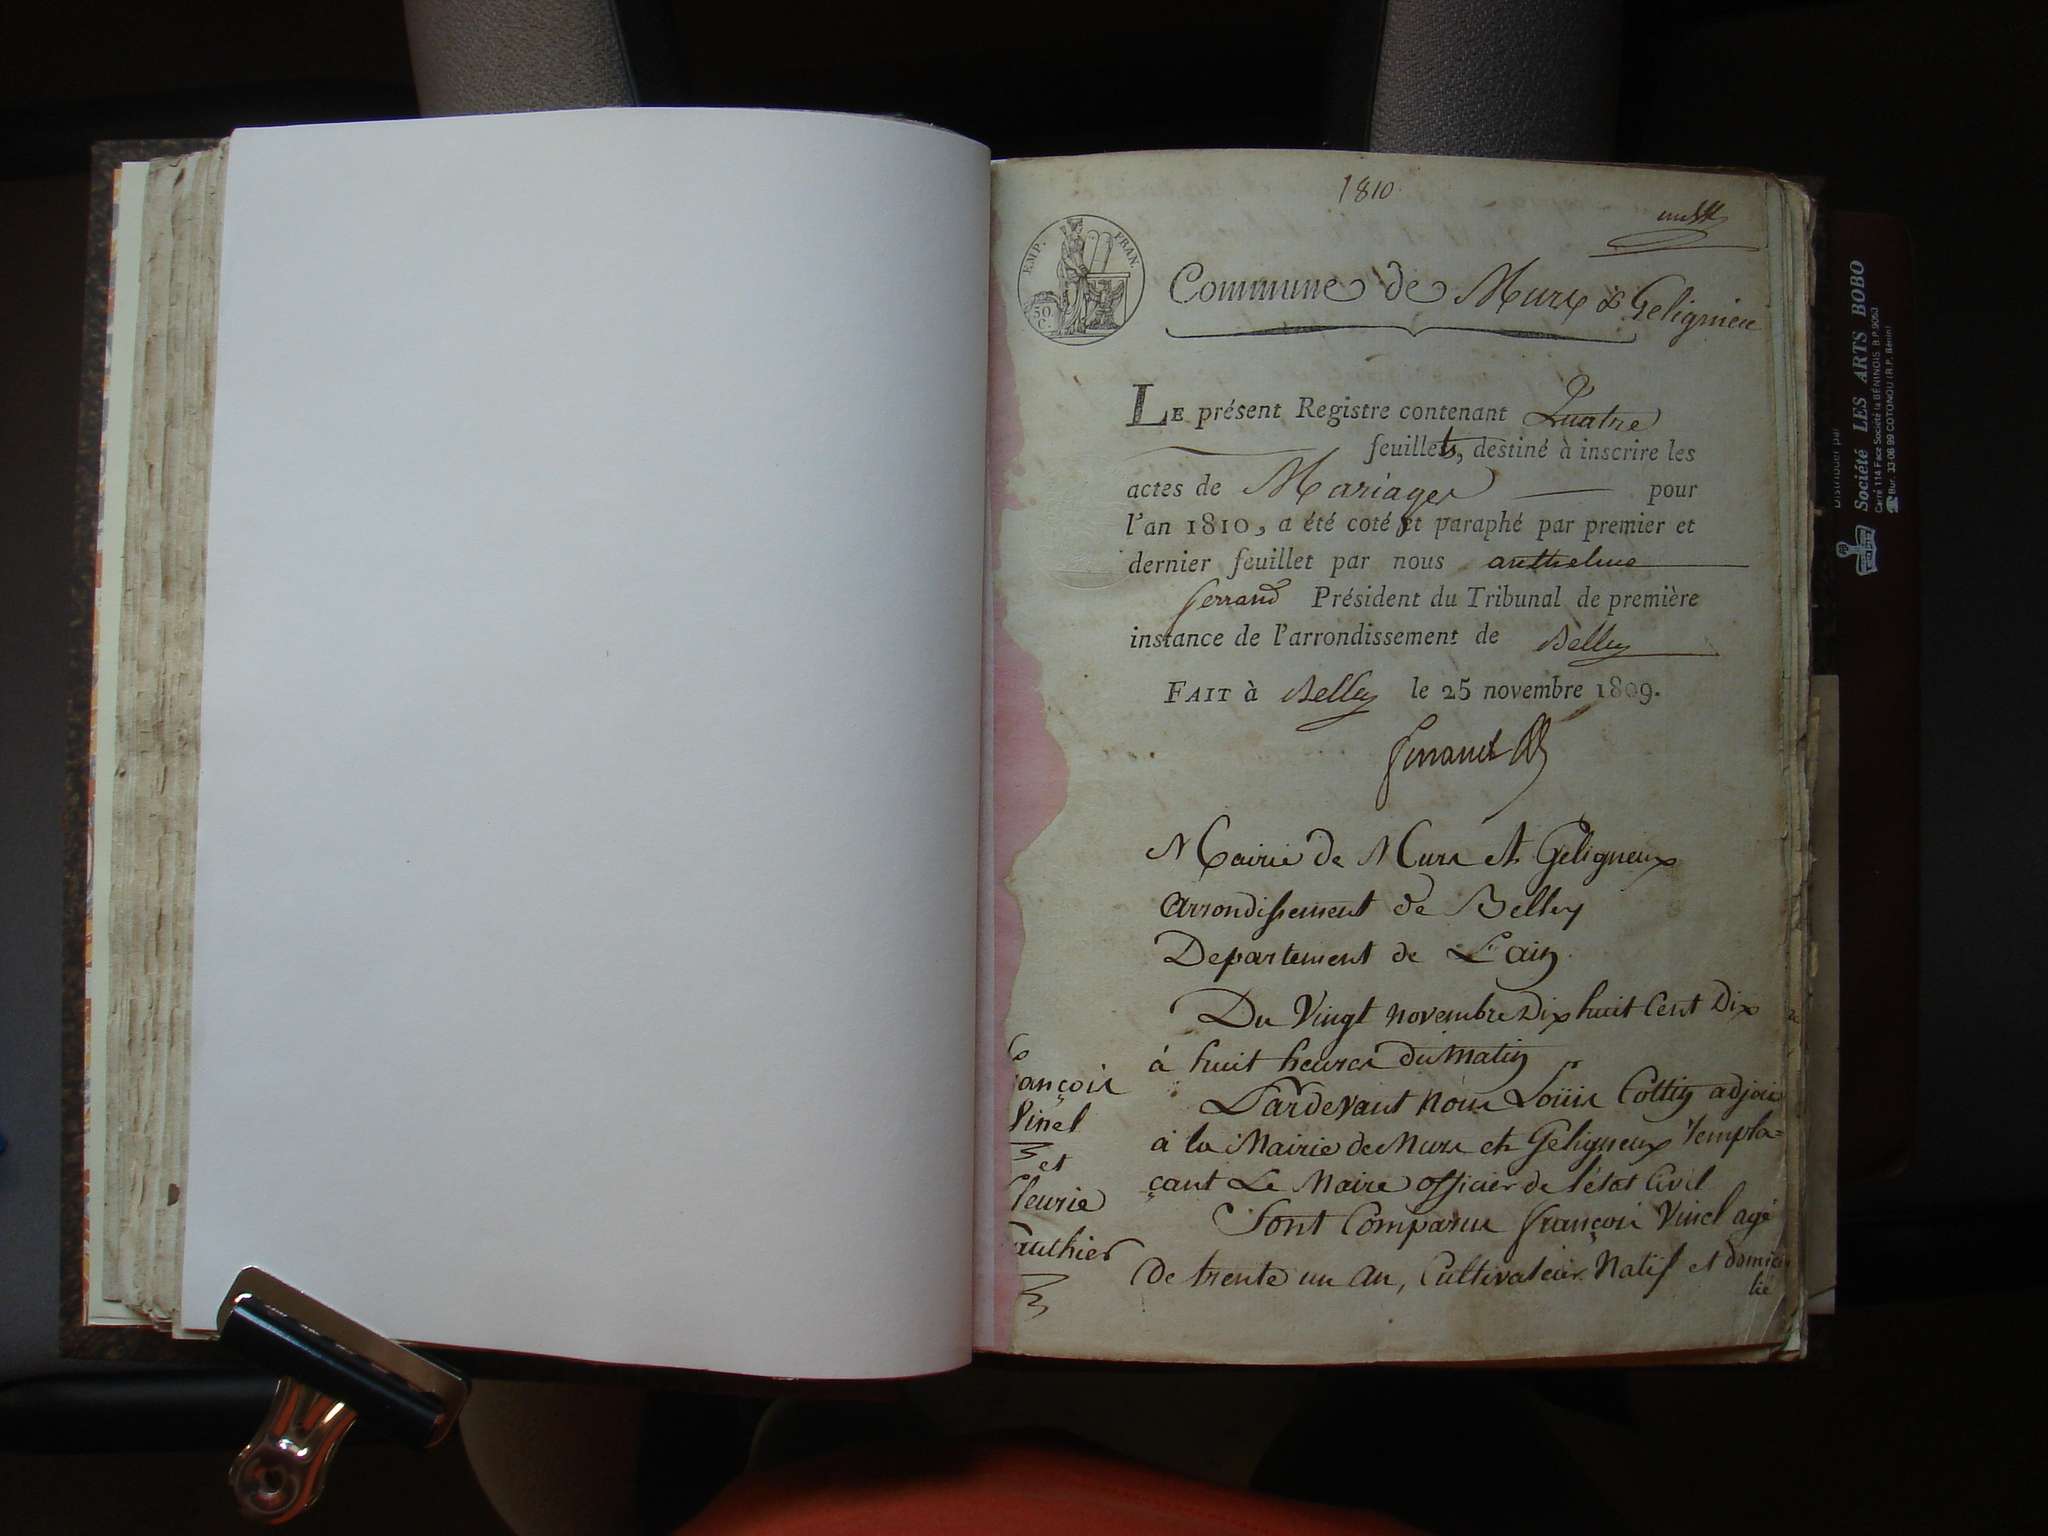 1810.
EMP. FRAN.
50
C.
Commune de Murs & Gelignieu
LE présent Registre contenant Quatre
feuillets, destiné à inscrire les
actes de Mariages pour
l'an 1810, a été coté et paraphé par premier et
dernier feuillet par nous anthelme
ferrand Président du Tribunal de première
instance de l'arrondissement de Belley
FAIT à Belley le 25 novembre 1809.
ferrand
Mairie de Murs et Geligneux
arrondissement de Belley
Departement de L'ain
Du Vingt novembre Dix huit Cent Dix
à huit heures du matin
Pardevant nous Loüis Cottin adjoin
à la Mairie de Murs et Geligneux rempla=
çant Le Maire officier de l'état Civil
Sont Comparus françois Vinel agé
de trente un an, Cultivateur Natif et domici
lié
ançois
Vinel
et
fleurie
authier
Distribuer par
Société LES ARTS BOBO
Carré 114 Face Société la BÉNINOIS B.P. 9053
Bur. 33 08 99 COTONOU (R.P. Bénin)